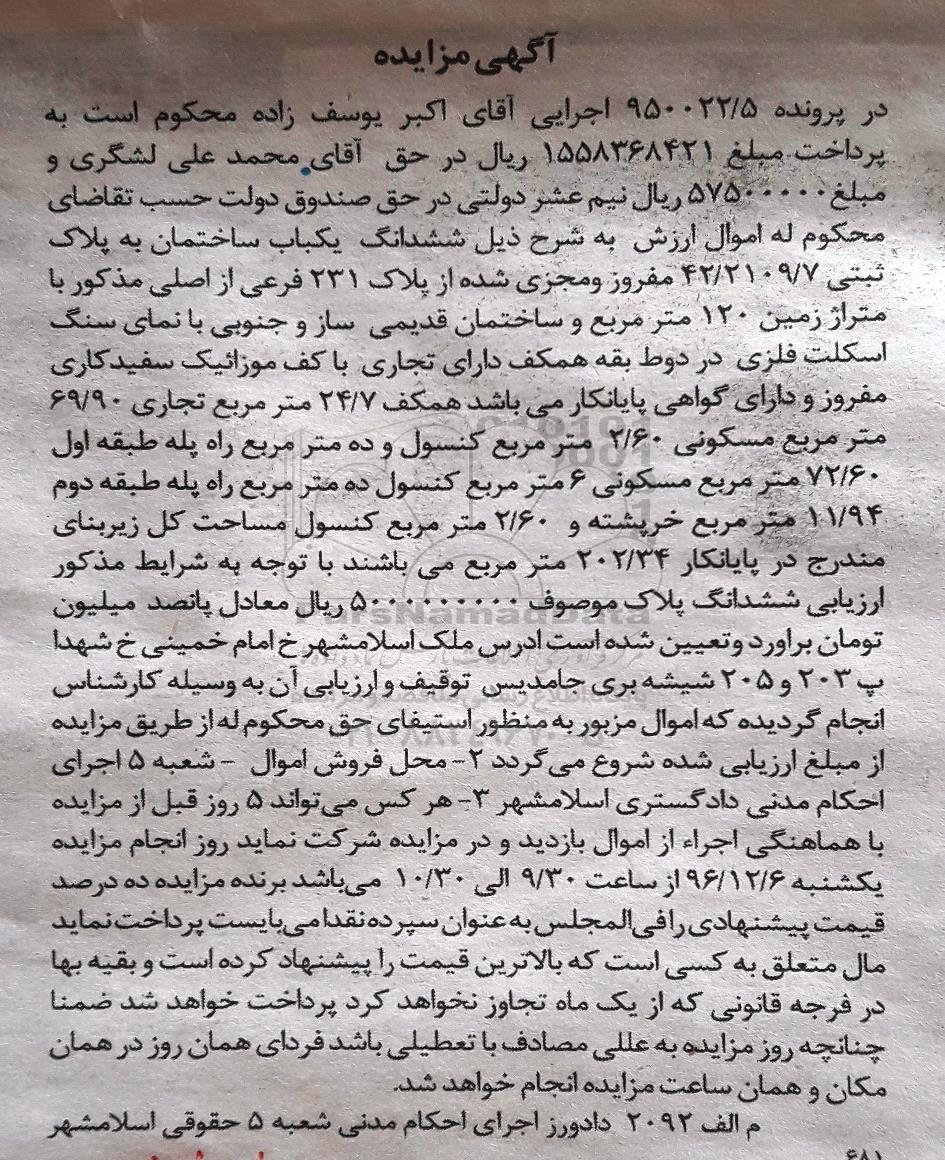 آگهی مزایده
در پرونده ۹۵۰۰۲۲/۵ اجرایی آقای اکبر یوسف زاده محکوم است به
پرداخت مبلغ ۱۵۵۸۳۶۸۴۲۱ ریال در حق آقای محمد علی لشگری و
مبلغ ۵۷۵۰۰۰۰۰ ریال نیم عشر دولتی در حق صندوق دولت حسب تقاضای
محکوم له اموال ارزش به شرح ذیل ششدانگ یکباب ساختمان به پلاک
ثبتی ۴۲/۲۱۰۹/۷ مفروز ومجزی شده از پلاک ۲۳۱ فرعی از اصلی مذکور با
متراژ زمین ۱۲۰ متر مربع و ساختمان قدیمی ساز و جنوبی با نمای سنگ
اسکلت فلزی در دوط بقه همکف دارای تجاری با کف موزائیک سفیدکاری
مفروز و دارای گواهی پایانکار می باشد همکف ۲۴/۷ متر مربع تجاری ۶۹/۹۰
متر مربع مسکونی ۲/۶۰ متر مربع کنسول و ده متر مربع راه پله طبقه اول
۷۲/۶۰ متر مربع مسکونی ۶ متر مربع کنسول ده متر مربع راه پله طبقه دوم
۱۱/۹۴ متر مربع خرپشته و ۲/۶۰ متر مربع کنسول مساحت کل زیربنای
مندرج در پایانکار ۲۰۲/۳۴ متر مربع می باشند با توجه به شرایط مذکور
ارزیابی ششدانگ پلاک موصوف ۵۰۰۰۰۰۰۰۰۰ ریال معادل پانصد میلیون
تومان براورد وتعیین شده است ادرس ملک اسلامشهر خ امام خمینی خ شهدا
پ ۲۰۳ و ۲۰۵ شیشه بری جامدیس توقیف و ارزیابی آن به وسیله کارشناس
انجام گردیده که اموال مزبور به منظور استیفای حق محکوم له از طریق مزایده
از مبلغ ارزیابی شده شروع می گردد ۲- محل فروش اموال - شعبه ۵ اجرای
احکام مدنی دادگستری اسلامشهر ۳- هر کس می‌تواند ۵ روز قبل از مزایده
با هماهنگی اجراء از اموال بازدید و در مزایده شرکت نماید روز انجام مزایده
یکشنبه ۹۶/۱۲/۶ از ساعت ۹/۳۰ الی ۱۰/۳۰ می‌باشد برنده مزایده ده درصد
قیمت پیشنهادی را فی‌المجلس به عنوان سپرده نقدا می‌بایست پرداخت نماید
مال متعلق به کسی است که بالاترین قیمت را پیشنهاد کرده است و بقیه بها
در فرجه قانونی که از یک ماه تجاوز نخواهد کرد پرداخت خواهد شد ضمنا
چنانچه روز مزایده به عللی مصادف با تعطیلی باشد فردای همان روز در همان
مکان و همان ساعت مزایده انجام خواهد شد.
م الف ۲۰۹۲ دادورز اجرای احکام مدنی شعبه ۵ حقوقی اسلامشهر
۶۸۱
ParsNamadData